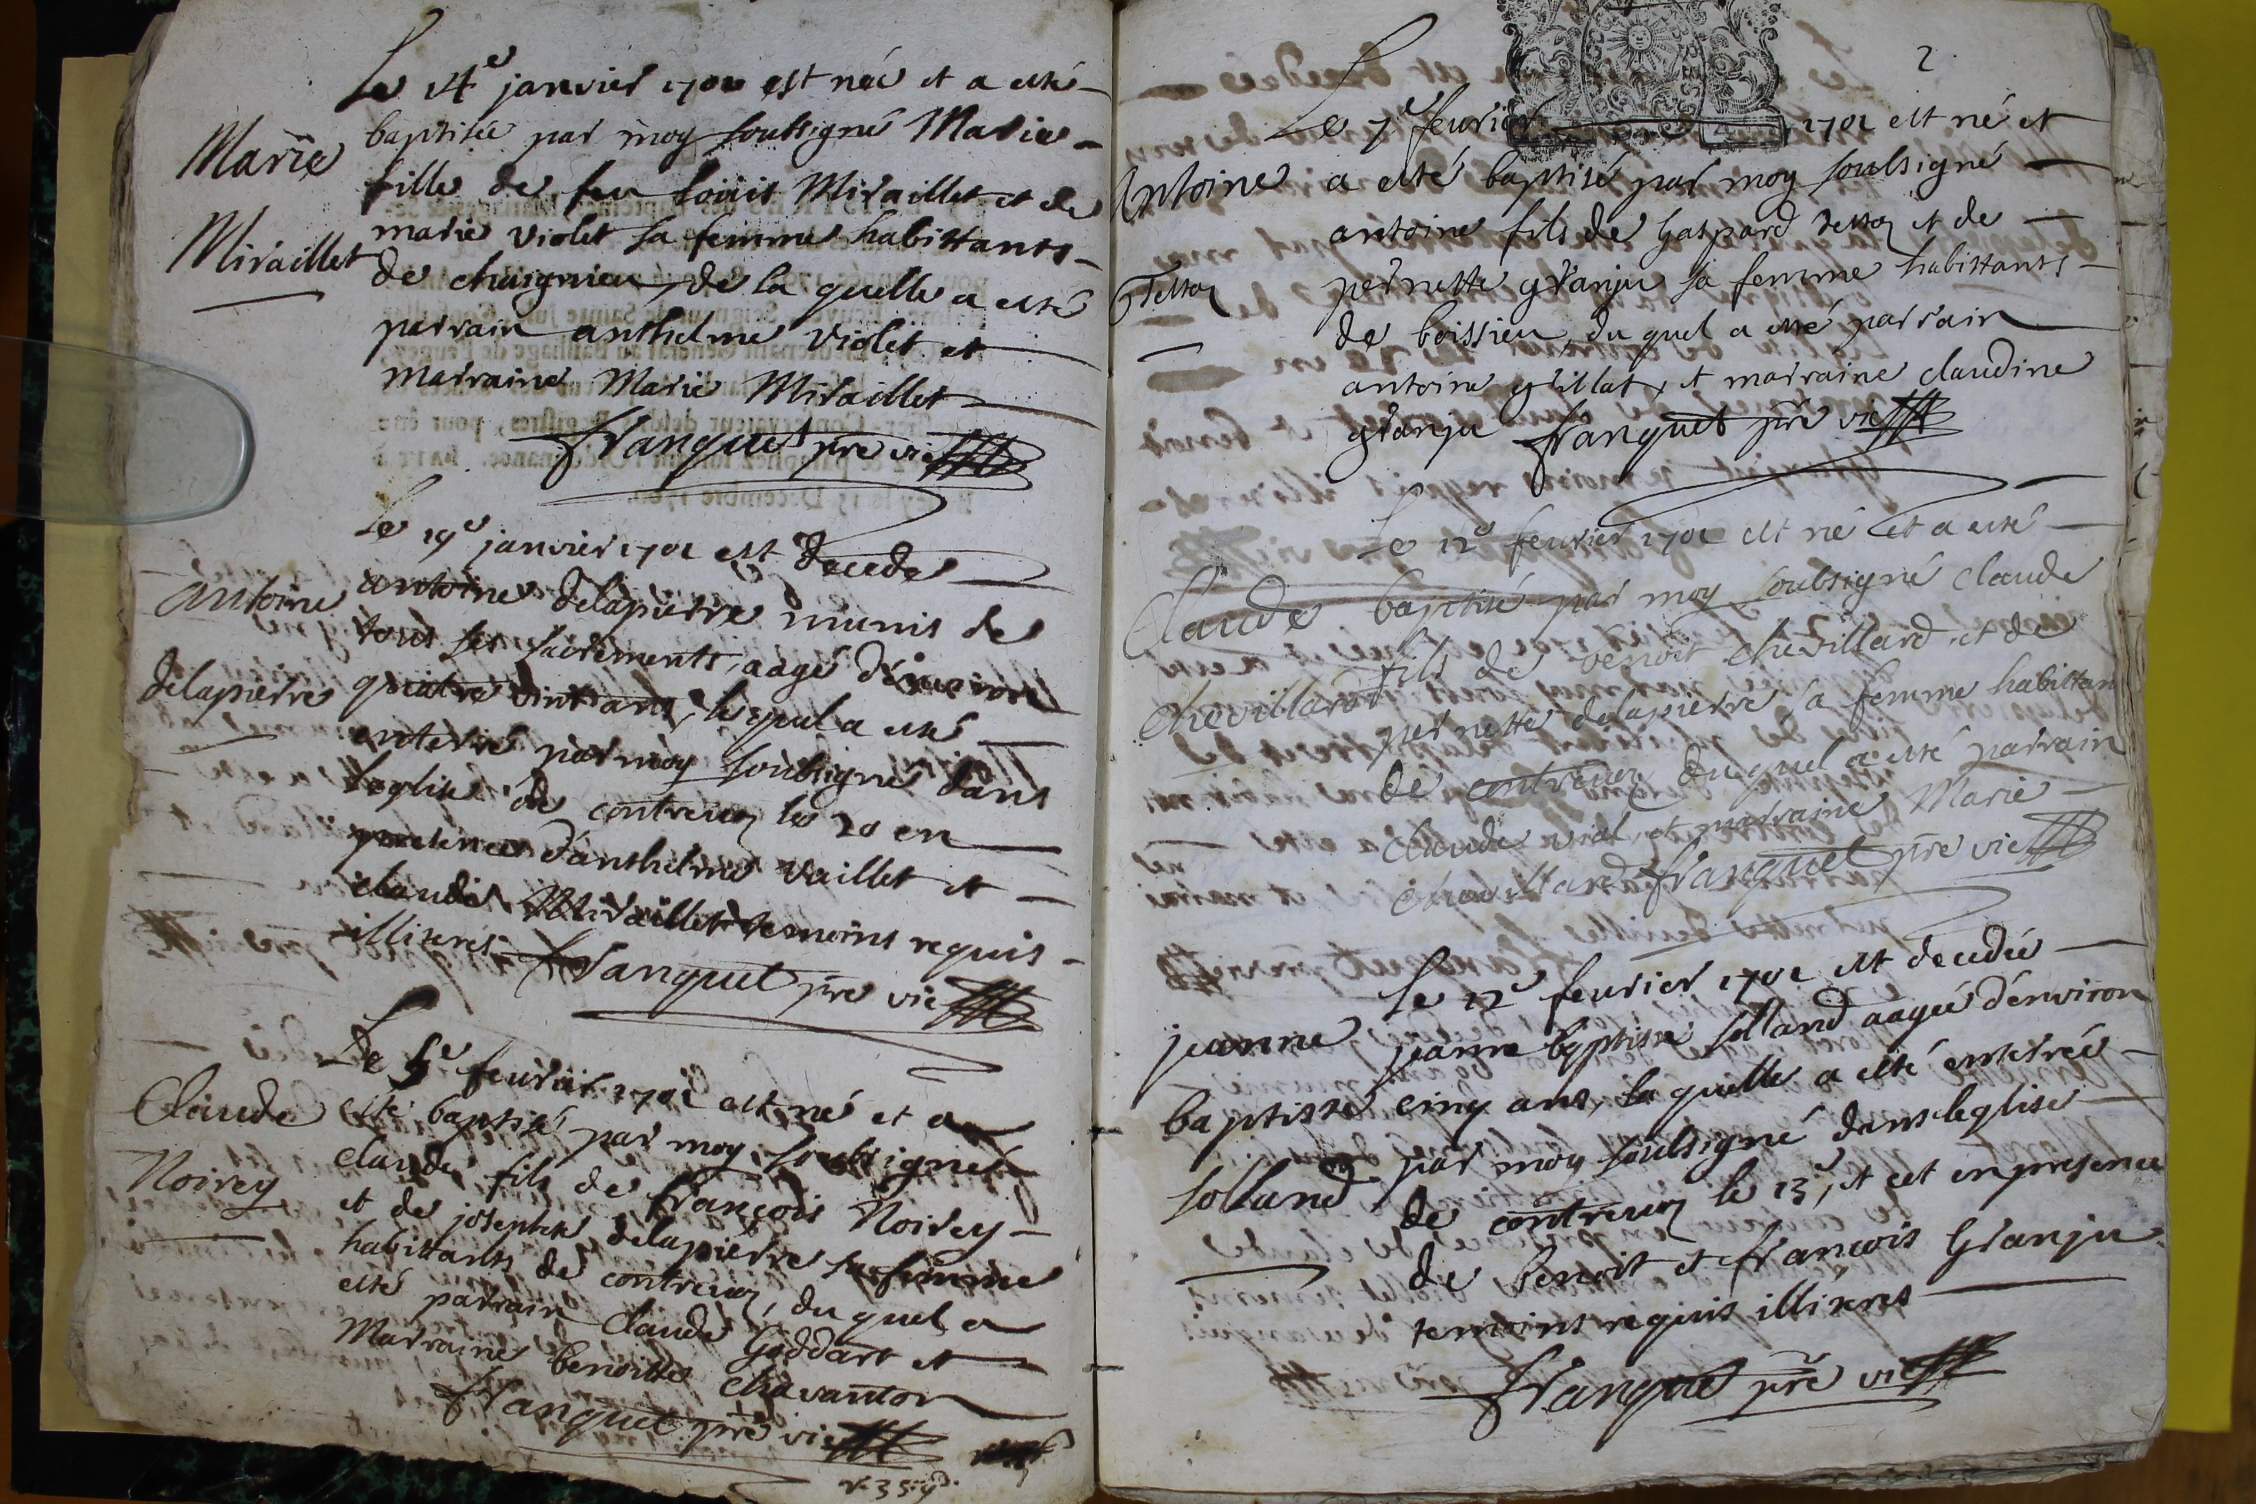 Le 14e janvier 1701 est née et a esté
baptisée par moy soubsigné Marie
Marie
fille de feu Louis Miraillet et de
marie violet sa femme habittants
Miraillet
de chaignieu, de la quelle a esté
parrain anthelme violet et
marraine Marie Miraillet
franquet pre vic
Le 19e janvier 1701 est decede
antoine
antoine delapierre munis de
tous ses sacrements, aagé d'environ
delapierre
quatre vint ans, lequel a esté
enterré par moy soubsigné dans
leglise de contrevoz le 20 en
presence d'anthelme vaillet et
claude Miraillet temoins requis
illiterés franquet pre vic
Le 5e feurier 1701 est né et a
Claude
esté baptisé par moy soubsigné
claude fils de françois Noirey
Noirey
et de josephte delapierre sa femme
habittants de contrevoz, du quel a
esté parrain Claude Goddart et
Marraine benoitte chavanton
franquet pre vic
2
Le 7e feurier 1701 est né et
Antoine
a esté baptisé par moy soubsigné
antoine fils de Gaspard tettoz et de
Tettoz
pernette granju sa femme habittants
de boissieu, du quel a esté parrain
antoine grillat, et marraine claudine
granju franquet pre vic
Le 12e feurier 1701 est né et a esté
Claude
baptisé par moy soubsigné claude
fils de benoit chevillard et de
Chevillard
pernette delapierre sa femme habittan
de contrevoz duquel a esté parrain
claude vial et marraine Marie
chevillard franquet pre vic
Le 12e feurier 1701 est decedée
jeanne
jeanne baptiste solland aagée d'environ
baptiste
cinq ans, la quelle a esté enterrée
solland
par moy soubsigné dans leglise
de contrevoz le 13e, et cet en presence
de benoit et françois Granju
temoins requis illiterés
franquet pre vic